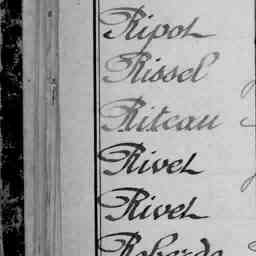 Ripot
Rissel
Riteau
Rivet
Rivet